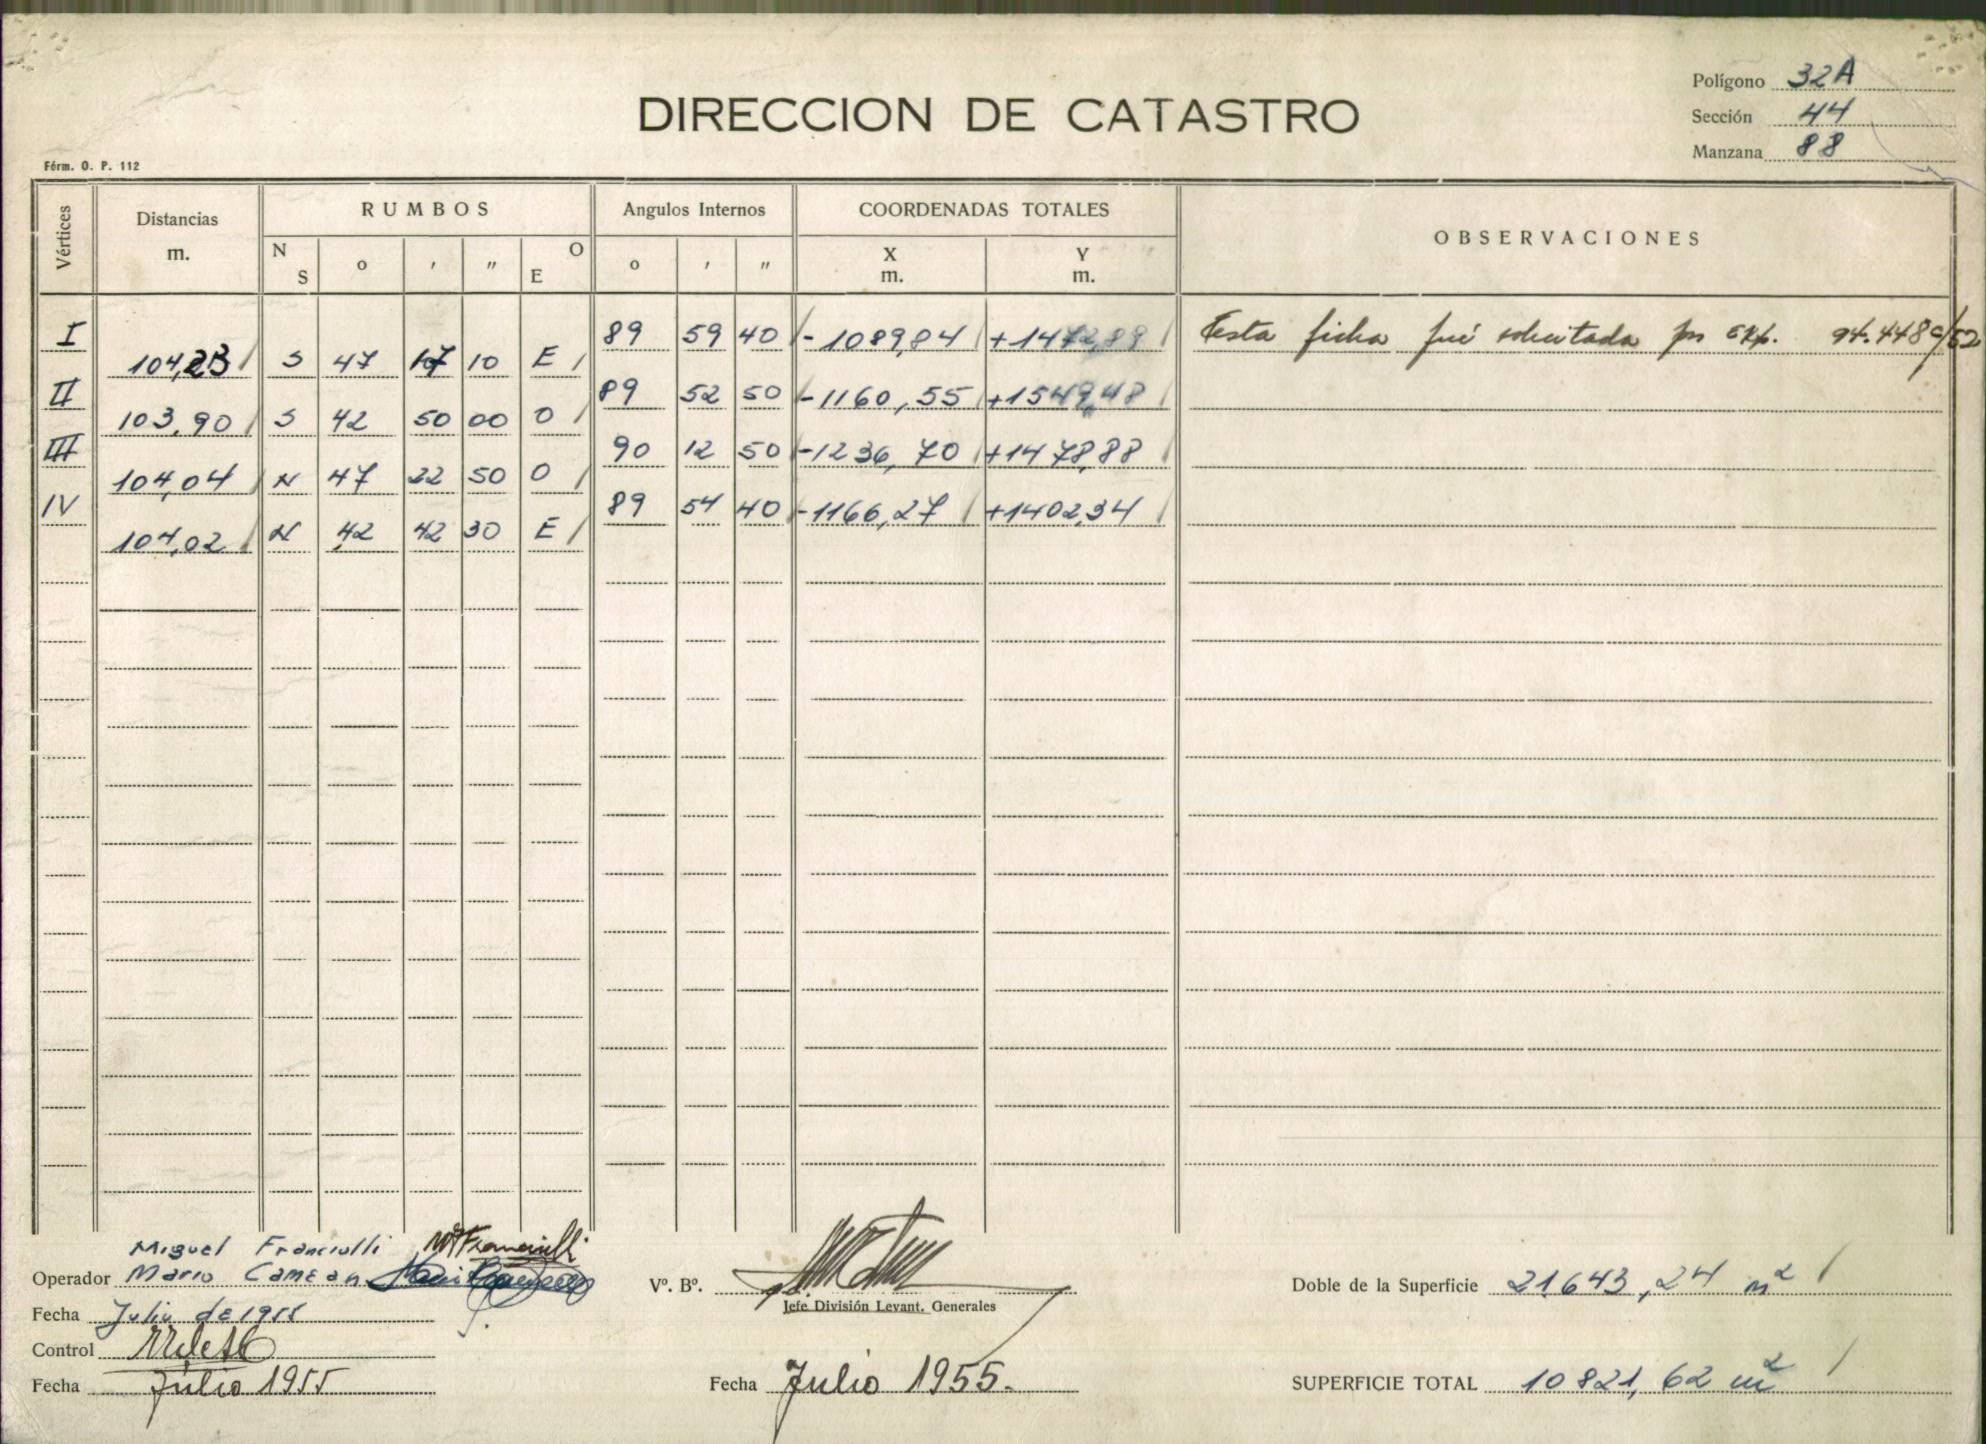 Polígono 32A
DIRECCION DE CATASTRO
Sección 44
Manzana 88
Férm. O. P. 112
Vértices Distancias m. RUMBOS N S o ' " O E Angulos Internos o ' " COORDENADAS TOTALES X m. Y m. OBSERVACIONES
I 89 59 40 -1089,84 +1472,89 Esta ficha fué solicitada por exp. 94.448c/52
104,23 S 47 17 10 E
II 89 52 50 -1160,55 +1549,48
103,90 S 42 50 00 O
III 90 12 50 -1236,70 +1478,88
104,04 N 47 22 50 O
IV 89 54 40 -1166,27 +1402,34
104,02 N 42 42 30 E
Miguel Franciulli MFranciulli
Operador Mario Camean
Vº. Bº.
Jefe División Levant. Generales
Doble de la Superficie 21643,24 m²
Fecha Julio de 1955
Control
Fecha Julio 1955
Fecha Julio 1955.
SUPERFICIE TOTAL 10821,62 m²